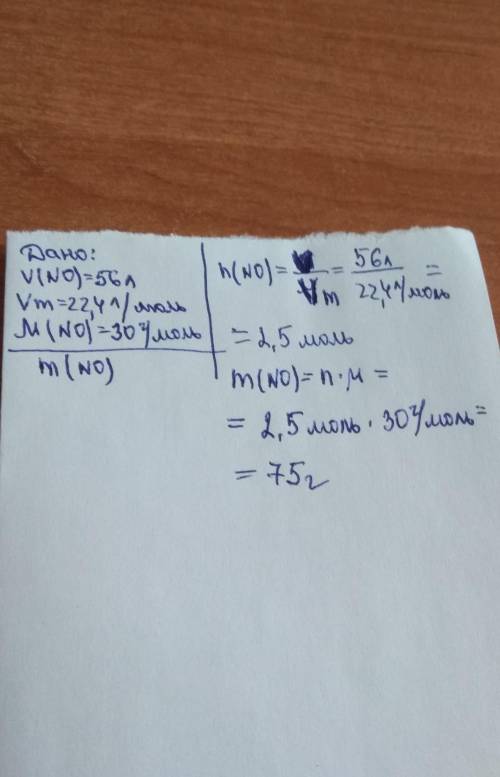 Дано:
V(NO)=56л
Vm=22,4л/моль
M(NO)=30г/моль
m(NO)
n(NO)=V/Vm=56л/22,4л/моль=
=2,5моль
m(NO)=n·M=
=2,5моль·30г/моль=
=75г